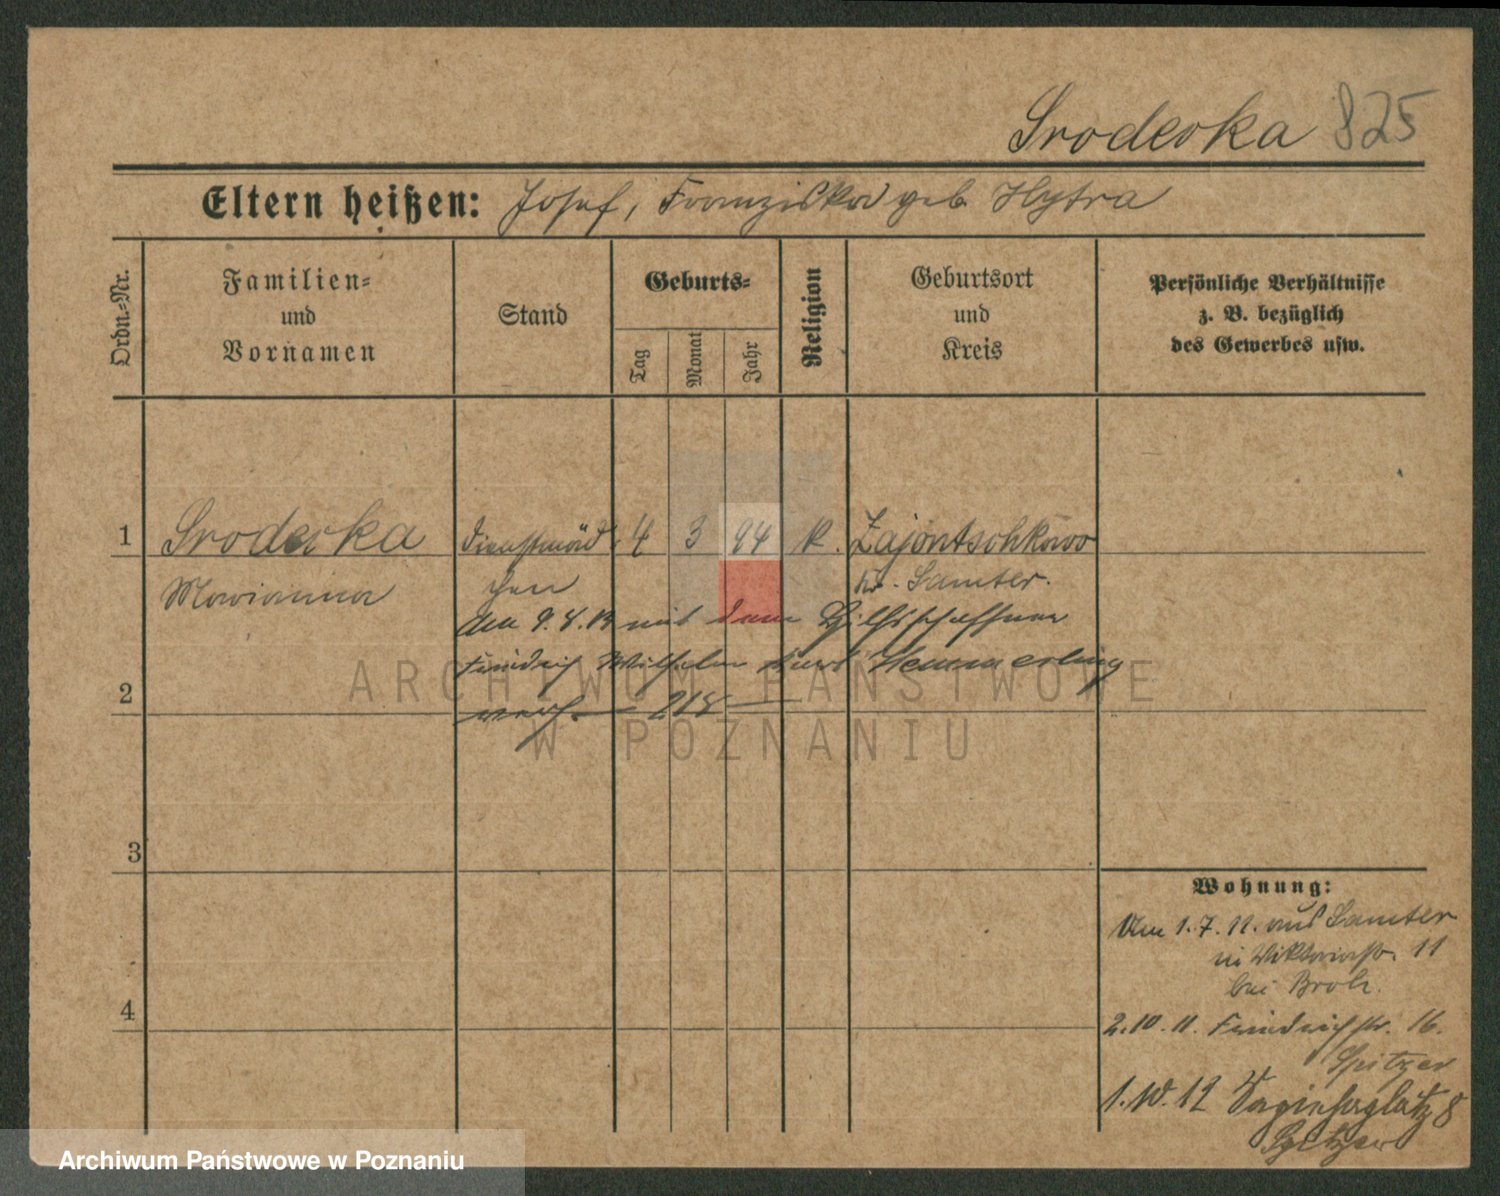 Srodecka 825
Eltern heißen: Josef, Franziska geb. Hytra
Ordn.-Nr.
Familien-
und
Vornamen
Stand
Geburts-
Tag
Monat
Jahr
Religion
Geburtsort
und
Kreis
Persönliche Verhältnisse
z. B. bezüglich
des Gewerbes usw.
1 Srodecka Dienstmäd- 4 3 94 k. Zajontschkowo
Marianna chen Kr. Samter.
den 9.8.19 mit dem Hilfsschaffner
Friedrich Wilhelm Kurt Hemmerling
2
verh. 218
3
4
Wohnung:
Am 1.7.11. aus Samter
in Viktoriastr. 11
bei
2.10.11. Friedrichstr. 16.
Spitzer
1.10.12 Sapiehaplatz 8
Spitzer
ARCHIWUM PAŃSTWOWE
W POZNANIU
Archiwum Państwowe w Poznaniu